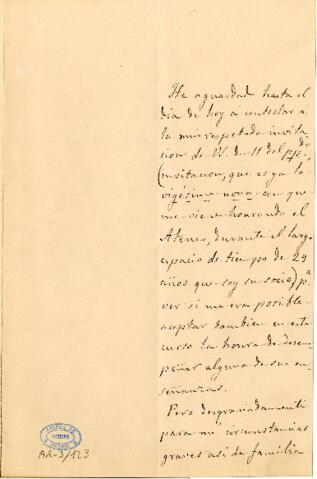 He aguardado hasta el
dia de hoy á contestar á
la muy respetada invita
cion de VS. de 11 del ppdo.
(invitacion, que es ya la
vigésimo nova con que
me viene honrando el
Ateneo, durante el largo
espacio de tiempo de 29
años que soy su socio) pa.
ver si me era posible
aceptar tambien en este
curso la honra de desem
peñar alguna de sus en
señanzas.
Pero desgraciadamente
para mi circunstancias
graves asi de familia
ATENEO DE
MADRID
AR-3/123